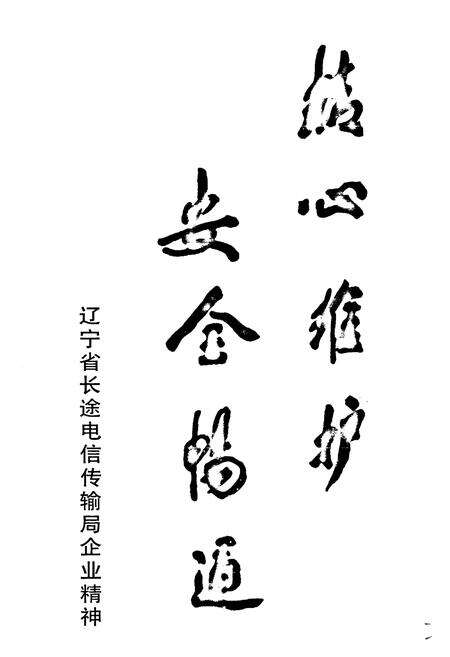 精心维护
安全畅通
辽宁省长途电信传输局企业精神